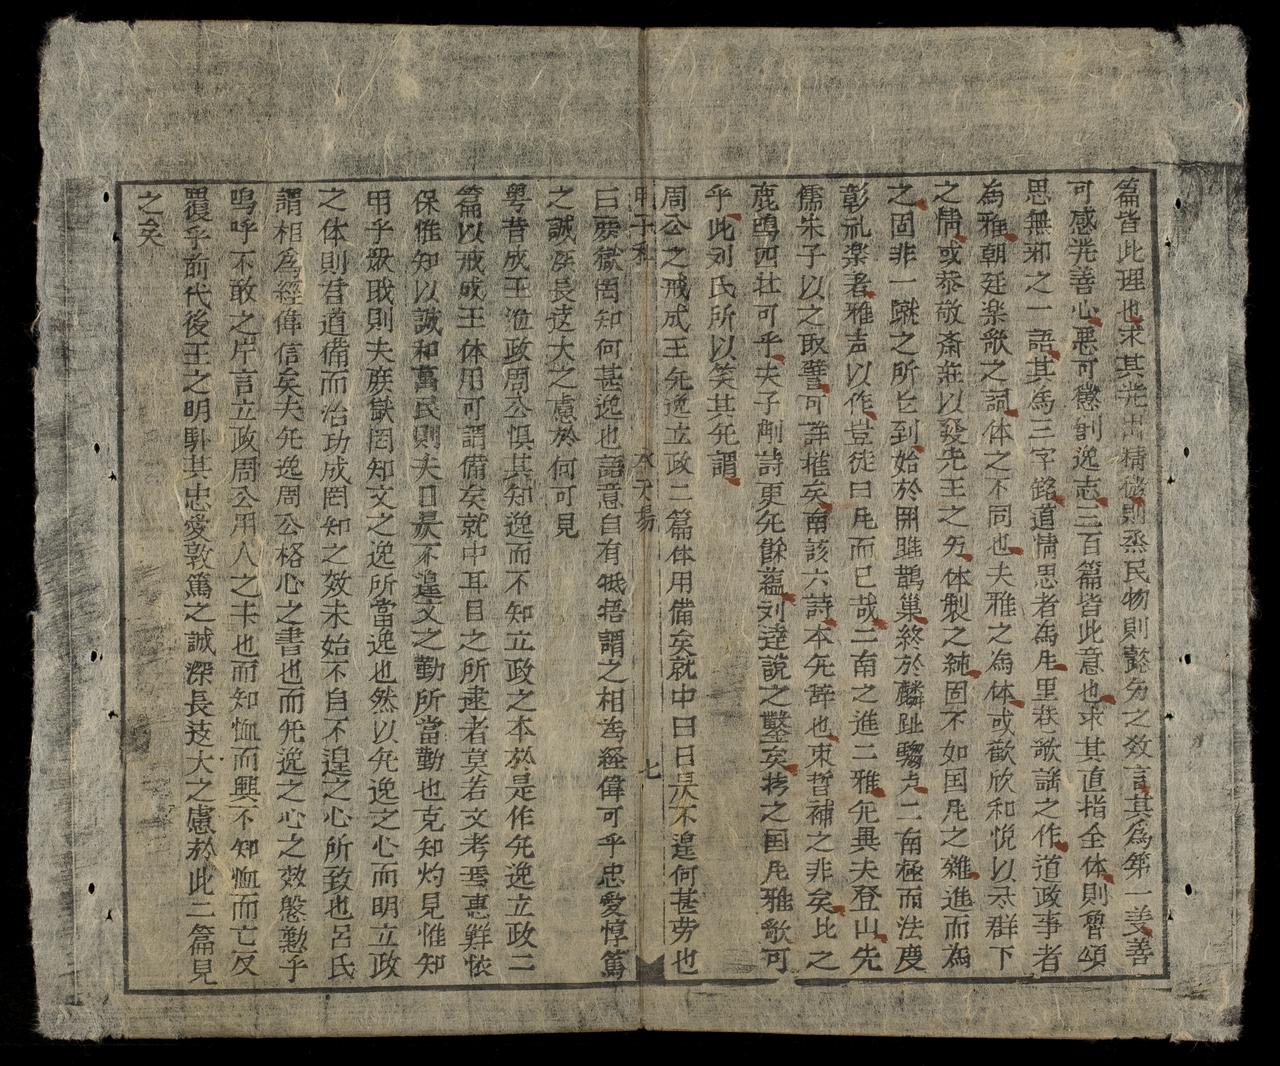 篇皆此理也求其光出精儀則烝民物則懿匇之效言其爲第一姜善
可感㳄善心悪可懲創逸志三百篇皆此意也求其直指全体則會頌
思無邪之一語其為三字銘道情思者為凡里巷歌謡之作道政事者
為雅朝廷楽歌之詞体之不同也夫雅之為体或歡欣和悦以尽群下
之情或恭敬斎莊以發先王之匇体製之純固不如国凡之雜進而為
之固非一蹴之所乞到始於関雎鵲巢終於麟趾騶虞二南極而法度
彰礼楽著雅吉以作豈徒曰凡而已哉二南之進二雅旡異夫登山先
儒朱子以之取譬可詳擢矣南該六詩本旡辞也束晳補之非矣比之
鹿鳴四牡可乎夫子刪詩更旡餘蘊刘逹說之鑿矣㧯之国凡雅歌可
乎此刘氏所以笑其旡謂
周公之戒成王旡逸立政二篇体用備矣就中曰日昃不遑何甚劳也
曰庶獄罔知何甚逸也語意自有牴牾謂之相為経偉可乎忠愛惇篤
之誠深長逺大之慮於何可見
粤昔成王涖政周公惧其知逸而不知立政之本於是作旡逸立政二
篇以戒成王体用可謂備矣就中耳目之所逮者莫若文考焉惠鮮懐
保惟知以諴和萬民則夫日昃不遑文之勤所當勤也克知灼見惟知
用乎㕠㦲則夫庶獄罔知文之逸所當逸也然以旡逸之心而明立政
之体則君道備而治功成罔知之效未始不自不遑之心所致也呂氏
謂相爲經偉信矣夫旡逸周公格心之書也而旡逸之心之效慇懃乎
嗚呼不敢之片言立政周公用人之本也而知恤而興不知恤而亡反
覆乎前代後王之明㪷其忠愛敦篤之誠深長逺大之慮於此二篇見
之矣